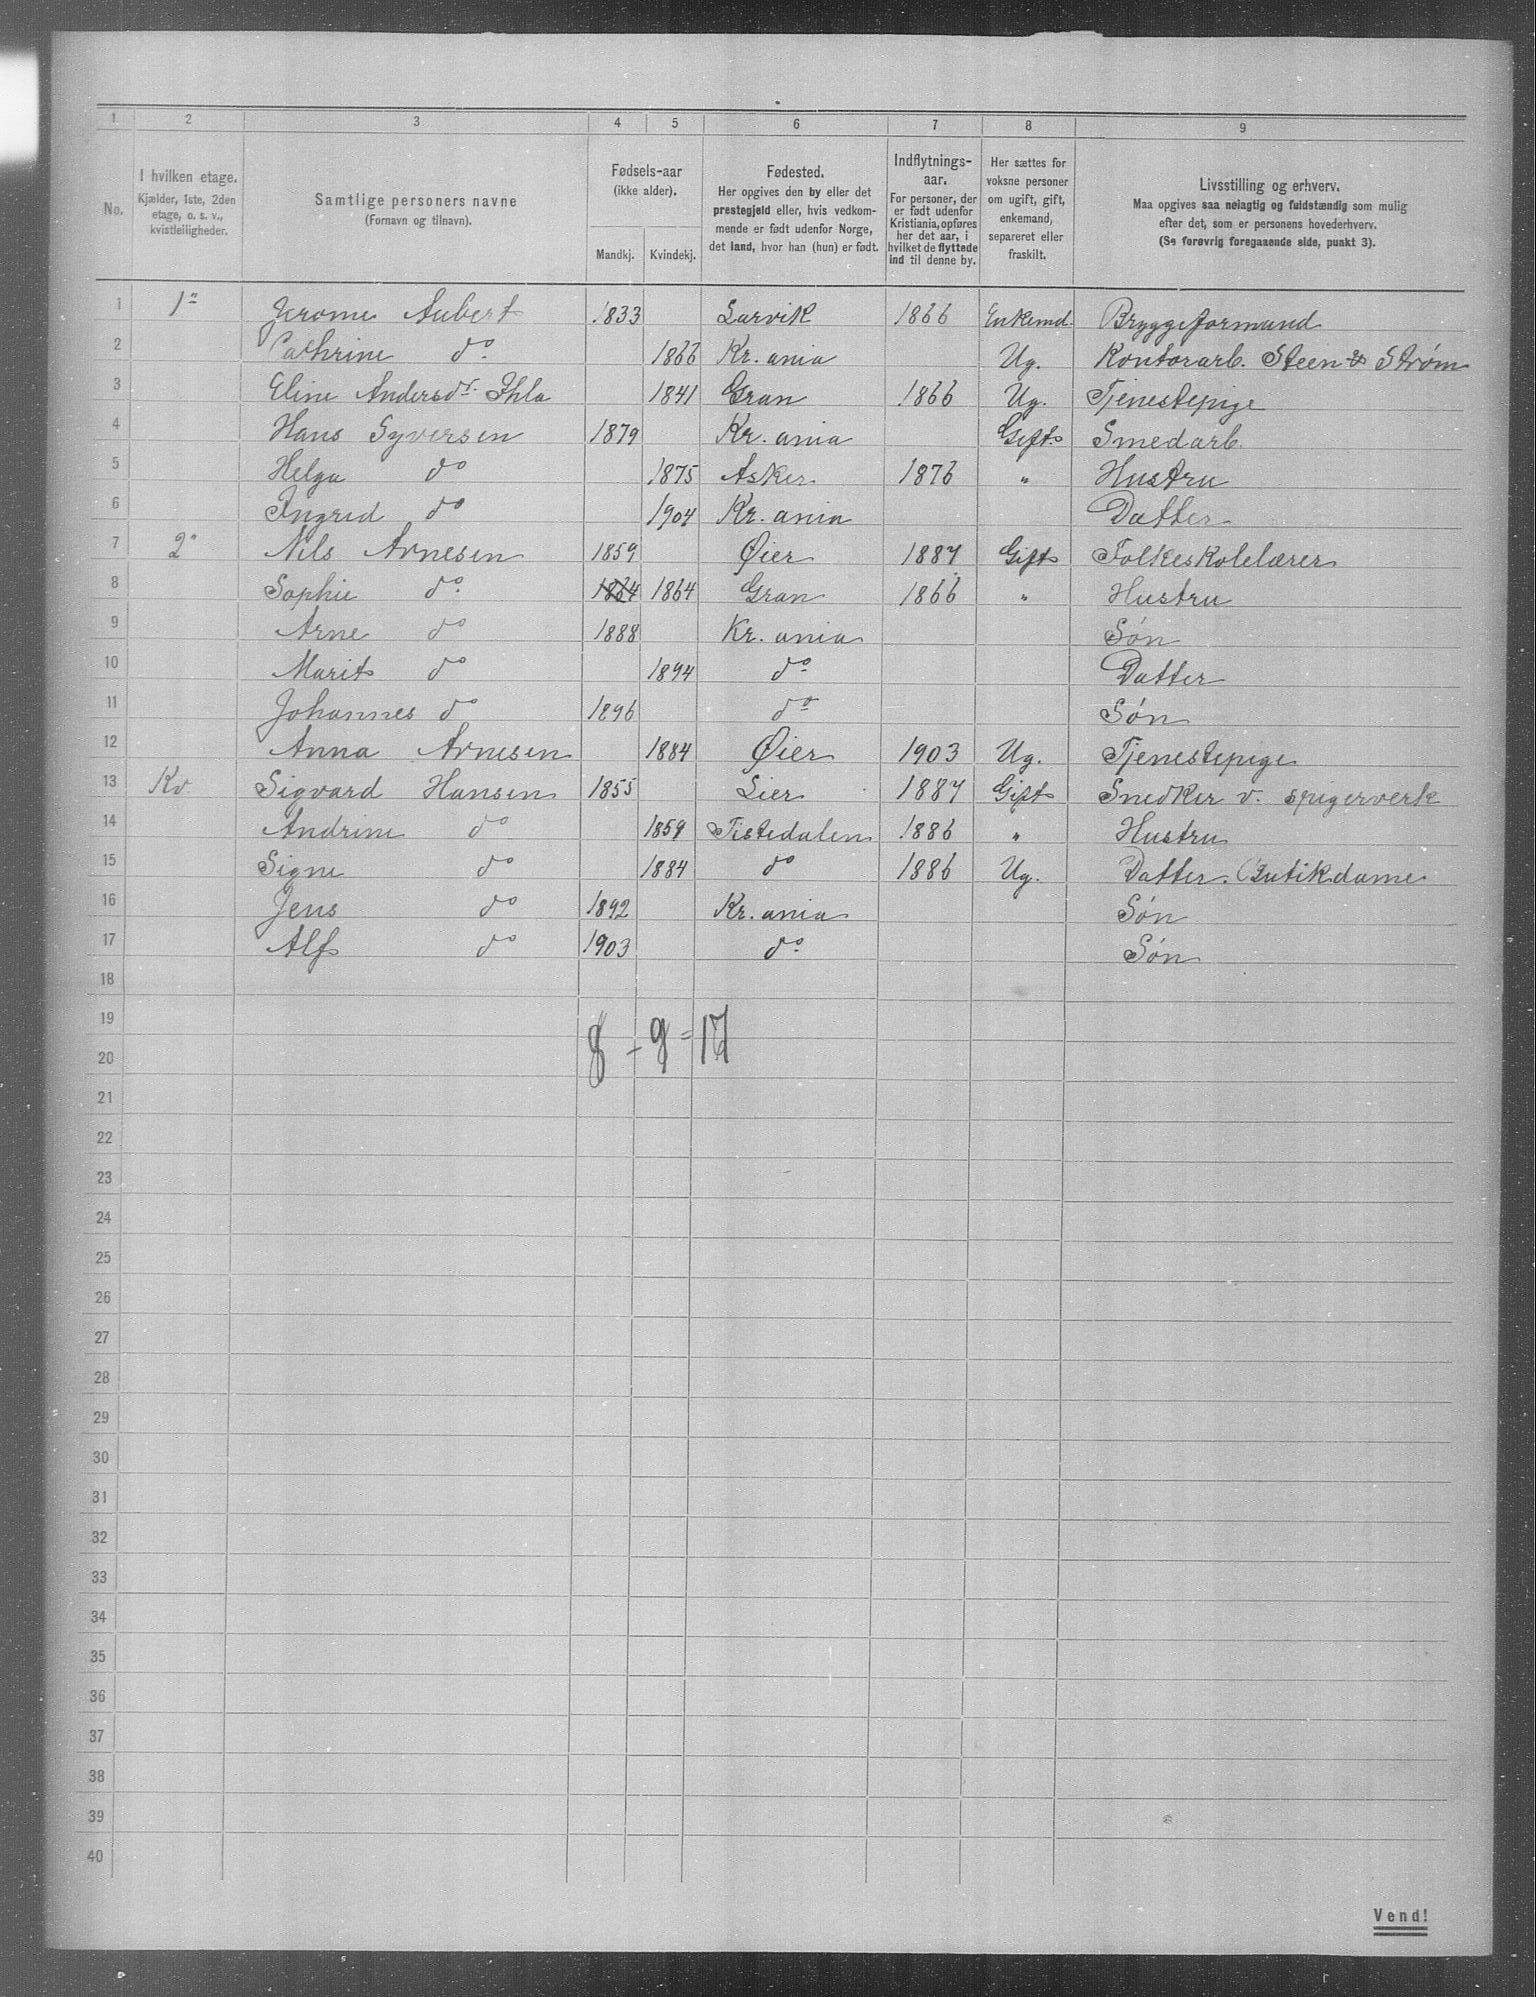 1 2 3 4 5 6 7 8 9
No.
I hvilken etage.
Kjælder, 1ste, 2den
etage, o. s. v.,
kvistleiligheder.
Samtlige personers navne
(Fornavn og tilnavn).
Fødsels-aar
(ikke alder).
Mandkj. Kvindekj.
Fødested.
Her opgives den by eller det
prestegjeld eller, hvis vedkom-
mende er født udenfor Norge,
det land, hvor han (hun) er født.
Indflytnings-
aar.
For personer, der
er født udenfor
Kristiania, opføres
her det aar, i
hvilket de flyttede
ind til denne by.
Her sættes for
voksne personer
om ugift, gift,
enkemand,
separeret eller
fraskilt.
Livsstilling og erhverv.
Maa opgives saa nøiagtig og fuldstændig som mulig
efter det, som er personens hovederhverv.
(Se forøvrig foregaaende side, punkt 3).
1 1" Jerome Aubert 1833 Larvik 1866 Enkemd. Bryggeformand
2 Cathrine do 1866 Kr.ania Ug. Kontorarb. Steen & Strøm
3 Eline Andersdr. Ihla 1841 Gran 1866 Ug. Tjenestepige
4 Hans Syversen 1879 Kr.ania Gift Smedarb.
5 Helga do 1875 Asker 1876 " Hustru
6 Ingrid do 1904 Kr.ania Datter
7 2" Nils Arnesen 1859 Øier 1887 Gift Folkeskolelærer
8 Sophie do 1864 1864 Gran 1866 " Hustru
9 Arne do 1888 Kr.ania Søn
10 Marit do 1894 do Datter
11 Johannes do 1896 do Søn
12 Anna Arnesen 1884 Øier 1903 Ug. Tjenestepige
13 Kv. Sigvard Hansen 1855 Lier 1887 Gift Snedker v. spigerverk
14 Andrine do 1859 Tistedalen 1886 " Hustru
15 Signe do 1884 do 1886 Ug. Datter. Butikdame
16 Jens do 1892 Kr.ania Søn
17 Alf do 1903 do Søn
18
19
8 - 9 = 17
20
21
22
23
24
25
26
27
28
29
30
31
32
33
34
35
36
37
38
39
40
Vend!